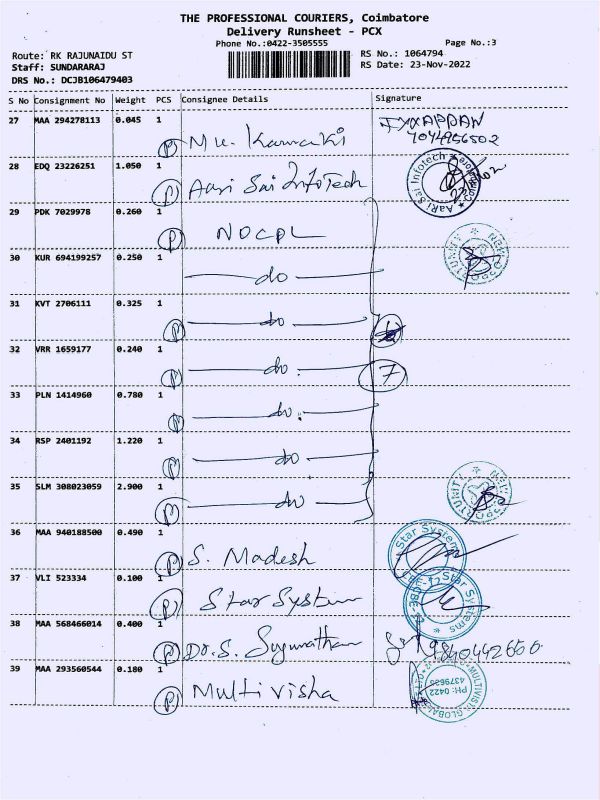 THE PROFESSIONAL COURIERS, Coimbatore
Delivery Runsheet - PCX
Phone No.:0422-3505555
Page No.:3
Route: RK RAJUNAIDU ST
RS No.: 1064794
Staff: SUNDARARAJ
RS Date: 23-Nov-2022
DRS No.: DCJB106479403
S No Consignment No Weight PCS Consignee Details Signature
27 MAA 294278113 0.045 1 IYYAPPAN
P 7094956502
28 EDQ 23226251 1.050 1
P Aari Sai InfoTech AaRi Sai Infotech
29 PDK 7029978 0.260 1
P NOCPL
30 KUR 694199257 0.250 1
do
31 KVT 2706111 0.325 1
P do
32 VRR 1659177 0.240 1
P do 7
33 PLN 1414960 0.780 1
P do
34 RSP 2401192 1.220 1
P do
35 SLM 308023059 2.900 1
P do
36 MAA 940188500 0.490 1
P S. Madesh Star Systems
37 VLI 523334 0.100 1
P Star System Star Systems
38 MAA 568466014 0.400 1
P Dr.S. 9840442600
39 MAA 293560544 0.180 1
P Multivisha MULTIVISTA GLOBAL
PH: 0422
4379635